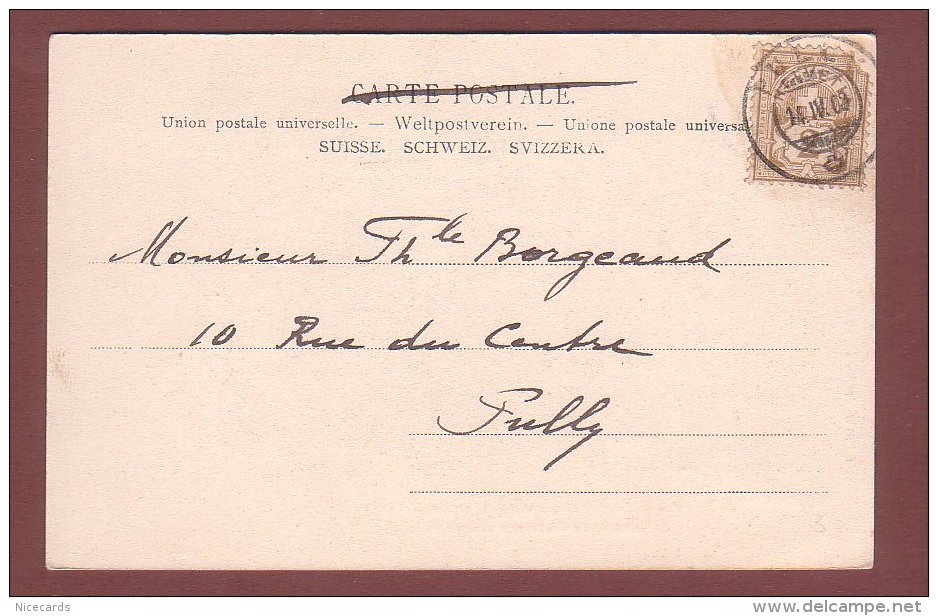 CARTE POSTALE.
Union postale universelle. — Weltpostverein. — Unione postale universa
SUISSE. SCHWEIZ. SVIZZERA.
14.IV.03
2
Monsieur Th^le Borgeaud
10 Rue du Centre
Pully
Nicecards
www.delcampe.net